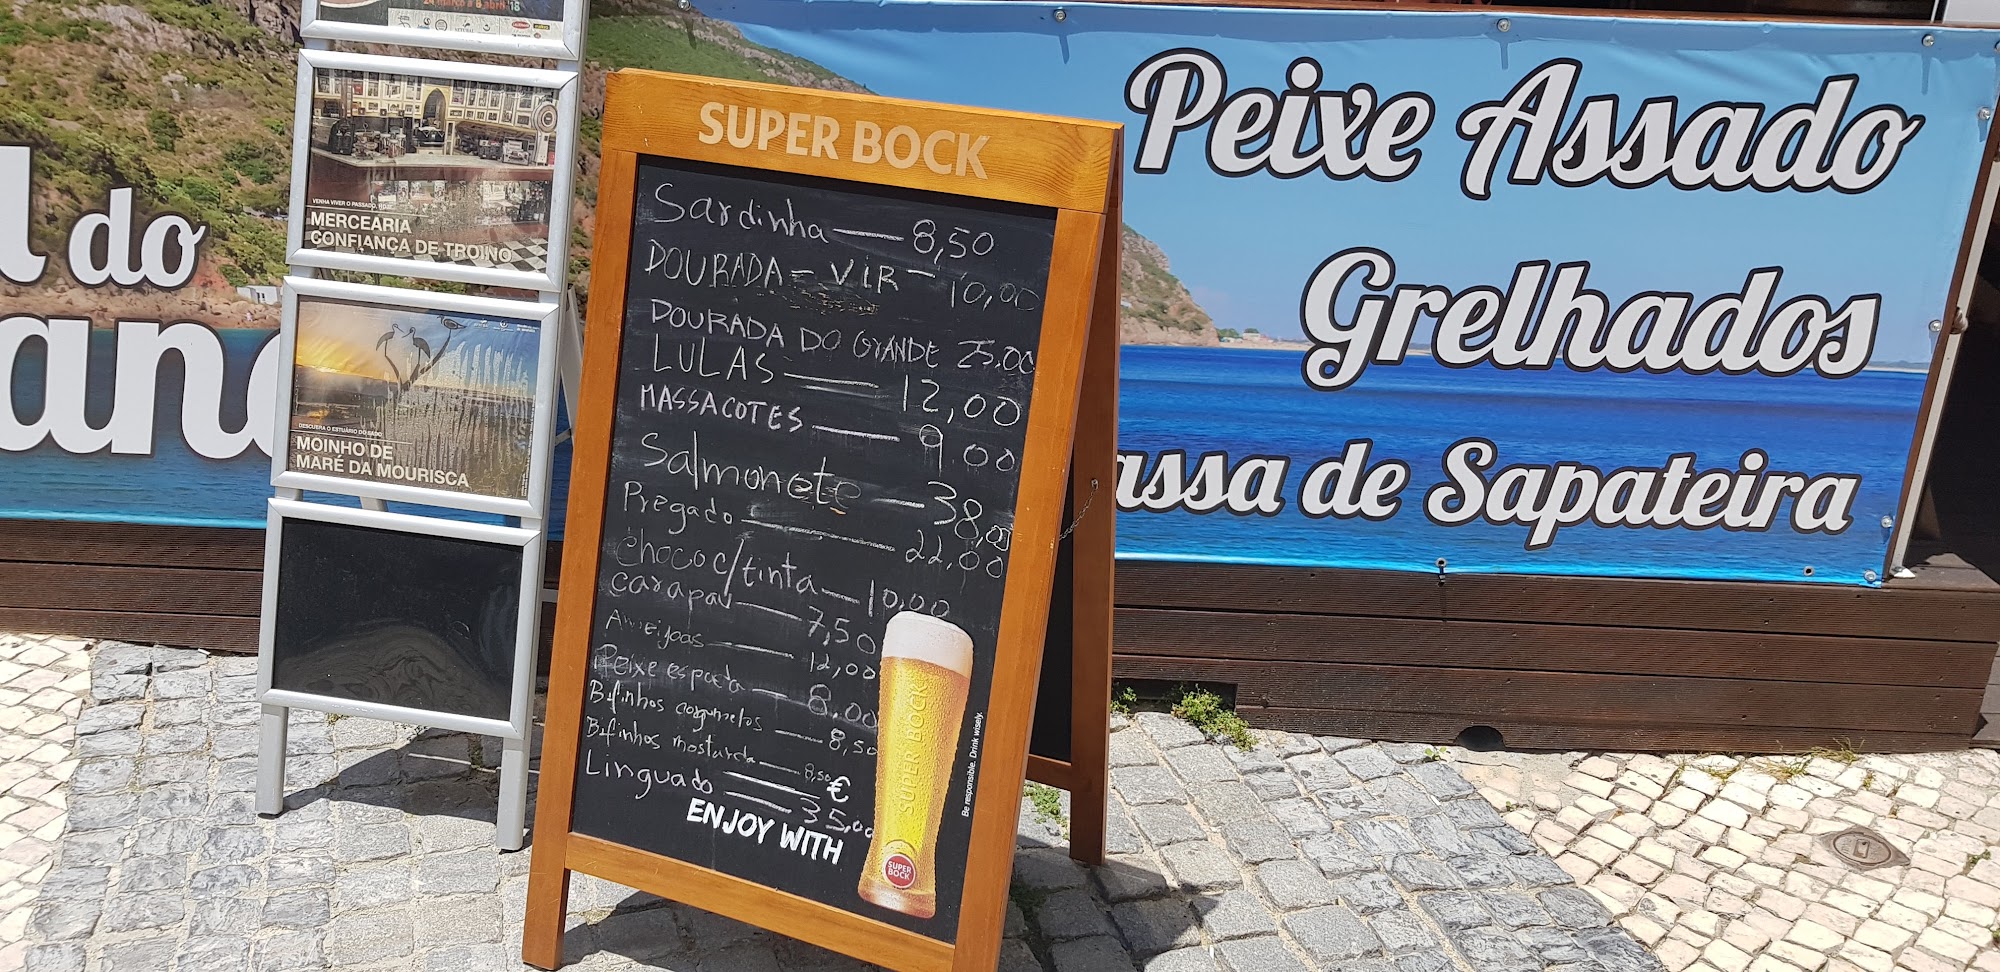 24 março a 8 abril '18
VENHA VIVER O PASSADO, HOJE
MERCEARIA
CONFIANÇA DE TROINO
DESCUBRA O ESTUÁRIO DO SADO
MOINHO DE
MARÉ DA MOURISCA
do
SUPER BOCK
Sardinha 8,50
DOURADA - VIR - 10,00
DOURADA DO GRANDE 25.00
LULAS 12,00
MASSACOTES 9.00
Salmonete 38,00
Pregado 22,00
Choco c/tinta 10,00
Carapau 7,50
Ameijoas 12,00
Peixe espada 8,00
Bifinhos cogumelos 8,50
Bifinhos mostarda 8,50 €
Linguado 35,00
ENJOY WITH
SUPER BOCK
SUPER
BOCK
Be responsible. Drink wisely.
Peixe Assado
Grelhados
assa de Sapateira